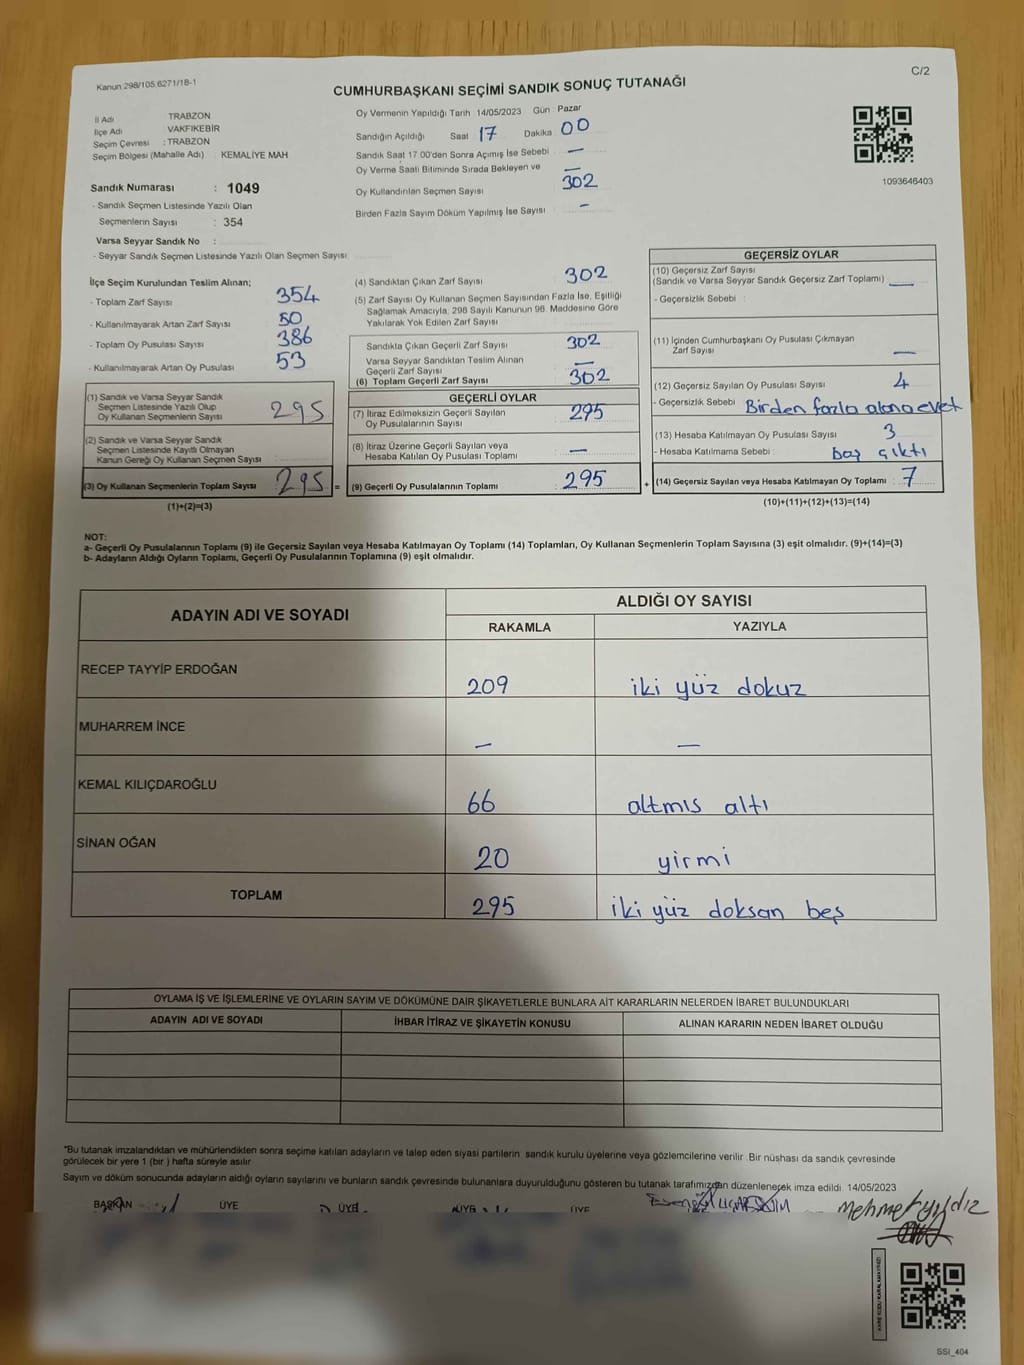 Kanun:298/105;6271/18-1
C/2
CUMHURBAŞKANI SEÇİMİ SANDIK SONUÇ TUTANAĞI
İl Adı TRABZON
İlçe Adı VAKFIKEBİR
Seçim Çevresi : TRABZON
Seçim Bölgesi (Mahalle Adı) : KEMALİYE MAH
Sandık Numarası : 1049
- Sandık Seçmen Listesinde Yazılı Olan
Seçmenlerin Sayısı : 354
Varsa Seyyar Sandık No :
- Seyyar Sandık Seçmen Listesinde Yazılı Olan Seçmen Sayısı
Oy Vermenin Yapıldığı Tarih 14/05/2023 Gün : Pazar
Sandığın Açıldığı Saat 17 Dakika 00
Sandık Saat 17.00'den Sonra Açımış İse Sebebi —
Oy Verme Saati Bitiminde Sırada Bekleyen ve —
Oy Kullandırılan Seçmen Sayısı 302
Birden Fazla Sayım Döküm Yapılmış İse Sayısı –
1093646403
İlçe Seçim Kurulundan Teslim Alınan;
- Toplam Zarf Sayısı 354
- Kullanılmayarak Artan Zarf Sayısı 50
- Toplam Oy Pusulası Sayısı 386
- Kullanılmayarak Artan Oy Pusulası 53
(1) Sandık ve Varsa Seyyar Sandık
Seçmen Listesinde Yazılı Olup
Oy Kullanan Seçmenlerin Sayısı 295
(2) Sandık ve Varsa Seyyar Sandık
Seçmen Listesinde Kayıtlı Olmayan
Kanun Gereği Oy Kullanan Seçmen Sayısı
(3) Oy Kullanan Seçmenlerin Toplam Sayısı 295 =
(1)+(2)=(3)
(4) Sandıktan Çıkan Zarf Sayısı 302
(5) Zarf Sayısı Oy Kullanan Seçmen Sayısından Fazla İse, Eşitliği
Sağlamak Amacıyla; 298 Sayılı Kanunun 98. Maddesine Göre
Yakılarak Yok Edilen Zarf Sayısı
Sandıkta Çıkan Geçerli Zarf Sayısı 302
Varsa Seyyar Sandıktan Teslim Alınan
Geçerli Zarf Sayısı —
(6) Toplam Geçerli Zarf Sayısı 302
GEÇERLİ OYLAR
(7) İtiraz Edilmeksizin Geçerli Sayılan
Oy Pusulalarının Sayısı 295
(8) İtiraz Üzerine Geçerli Sayılan veya
Hesaba Katılan Oy Pusulası Toplamı —
(9) Geçerli Oy Pusulalarının Toplamı 295 +
GEÇERSİZ OYLAR
(10) Geçersiz Zarf Sayısı
(Sandık ve Varsa Seyyar Sandık Geçersiz Zarf Toplamı) —
- Geçersizlik Sebebi :
(11) İçinden Cumhurbaşkanı Oy Pusulası Çıkmayan
Zarf Sayısı —
(12) Geçersiz Sayılan Oy Pusulası Sayısı 4
- Geçersizlik Sebebi : Birden fazla alana evet
(13) Hesaba Katılmayan Oy Pusulası Sayısı 3
- Hesaba Katılmama Sebebi : boş çıktı
(14) Geçersiz Sayılan veya Hesaba Katılmayan Oy Toplamı 7
(10)+(11)+(12)+(13)=(14)
NOT:
a- Geçerli Oy Pusulalarının Toplamı (9) ile Geçersiz Sayılan veya Hesaba Katılmayan Oy Toplamı (14) Toplamları, Oy Kullanan Seçmenlerin Toplam Sayısına (3) eşit olmalıdır. (9)+(14)=(3)
b- Adayların Aldığı Oyların Toplamı, Geçerli Oy Pusulalarının Toplamına (9) eşit olmalıdır.
ADAYIN ADI VE SOYADI
ALDIĞI OY SAYISI
RAKAMLA YAZIYLA
RECEP TAYYİP ERDOĞAN 209 iki yüz dokuz
MUHARREM İNCE — —
KEMAL KILIÇDAROĞLU 66 altmış altı
SİNAN OĞAN 20 yirmi
TOPLAM 295 iki yüz doksan beş
OYLAMA İŞ VE İŞLEMLERİNE VE OYLARIN SAYIM VE DÖKÜMÜNE DAİR ŞİKAYETLERLE BUNLARA AİT KARARLARIN NELERDEN İBARET BULUNDUKLARI
ADAYIN ADI VE SOYADI İHBAR İTİRAZ VE ŞİKAYETİN KONUSU ALINAN KARARIN NEDEN İBARET OLDUĞU
*Bu tutanak imzalandıktan ve mühürlendikten sonra seçime katılan adayların ve talep eden siyasi partilerin sandık kurulu üyelerine veya gözlemcilerine verilir .Bir nüshası da sandık çevresinde
görülecek bir yere 1 (bir ) hafta süreyle asılır
Sayım ve döküm sonucunda adayların aldığı oyların sayılarını ve bunların sandık çevresinde bulunanlara duyurulduğunu gösteren bu tutanak tarafımızdan düzenlenerek imza edildi. 14/05/2023
BAŞKAN ÜYE ÜYE ÜYE ÜYE
Mehmet yıldız
SSI_404